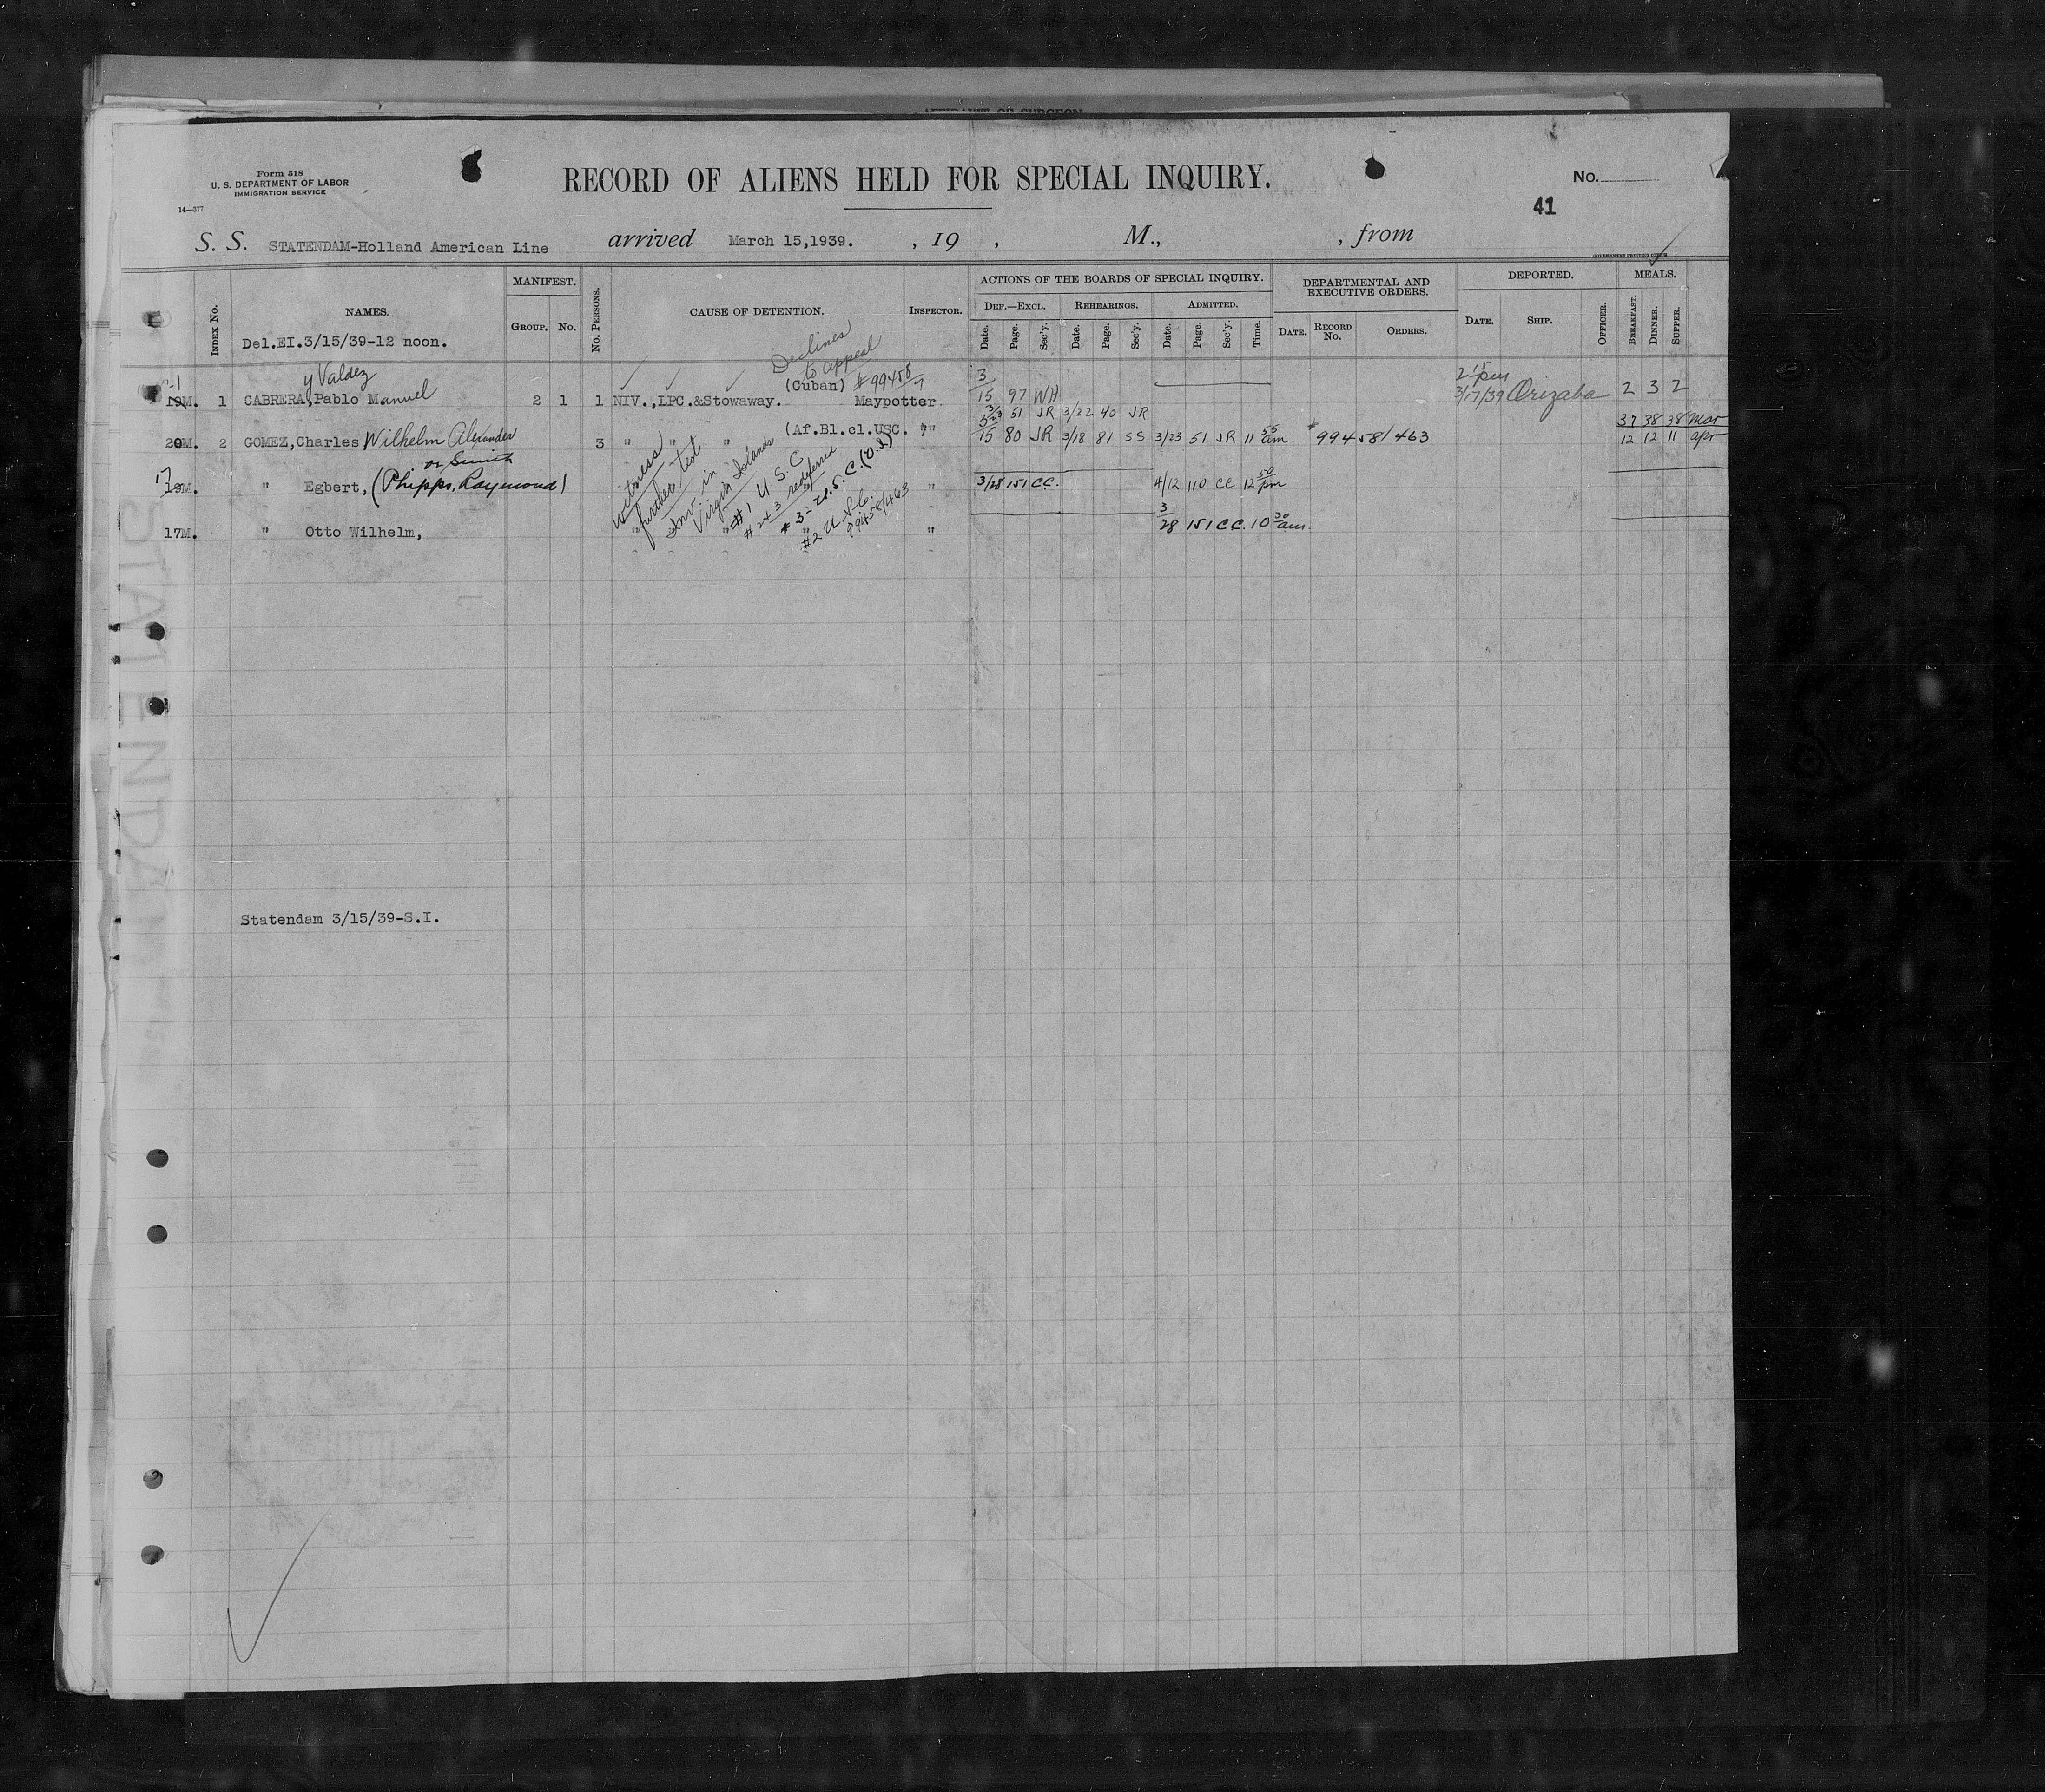 AFFIDAVIT OF SURGEON
Form 518
U. S. DEPARTMENT OF LABOR
IMMIGRATION SERVICE
14—377
RECORD OF ALIENS HELD FOR SPECIAL INQUIRY.
No.
41
S. S. STATENDAM-Holland American Line arrived March 15,1939. , 19 , M., , from
INDEX No. NAMES. MANIFEST. GROUP. No. No. PERSONS. CAUSE OF DETENTION. INSPECTOR. ACTIONS OF THE BOARDS OF SPECIAL INQUIRY. DEPARTMENTAL AND EXECUTIVE ORDERS. DEPORTED. MEALS.
DEF.—EXCL. REHEARINGS. ADMITTED.
Date. Page. Sec'y. Date. Page. Sec'y. Date. Page. Sec'y. Time. DATE. RECORD No. ORDERS. DATE. SHIP. OFFICER. BREAKFAST. DINNER. SUPPER.
Del.EI.3/15/39-12 noon.
Declines
to appeal
y Valdez (Cuban) #99458/7 3 2 15 pm
19M. 1 CABRERA,Pablo Manuel 2 1 1 NIV.,LPC.&Stowaway. Maypotter 15 97 WH 3/17/39 Orizaba 2 3 2
3/23 51 JR 3/22 40 JR 37 38 38 Mar
20M. 2 GOMEZ,Charles Wilhelm Alexander 3 " " " (Af.Bl.cl.USC. " 15 80 JR 3/18 81 SS 3/23 51 JR 11 55 am #99458/463 12 12 11 apr
or Smith
17
19M. " Egbert, (Phipps, Raymond) " 3/28 151 CC. 4/12 110 CC 12 50 pm
17M. " Otto Wilhelm, " " " " 3/28 151 CC. 10 30 am.
witness
further test.
Inv. in
Virgin Islands
#1 U.S.C
#2&3 redeferred
#3- U.S.C.(V.I)
#2 U.S.C.
99458/463
Statendam 3/15/39-S.I.